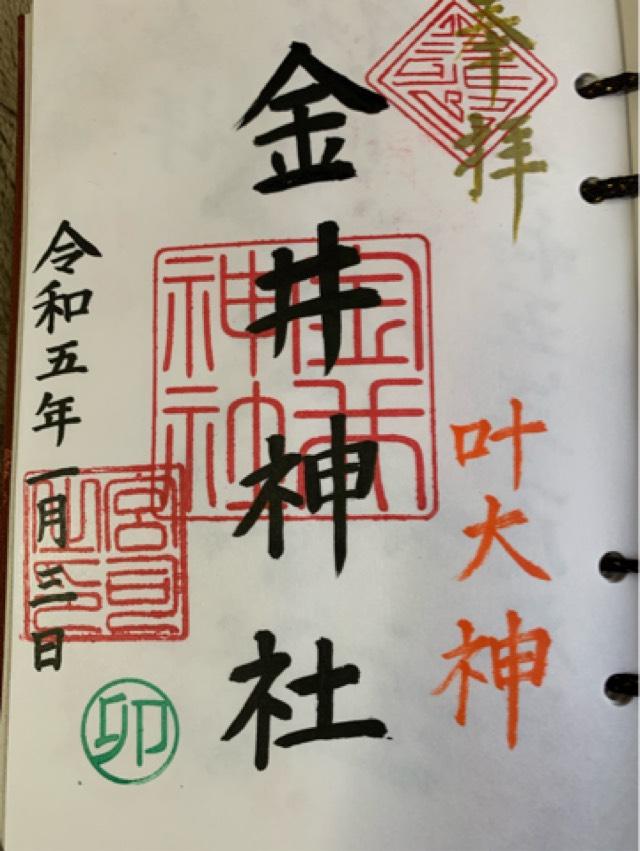 奉拝
叶大神
金井神社
令和五年一月三日
宮司之印
卯